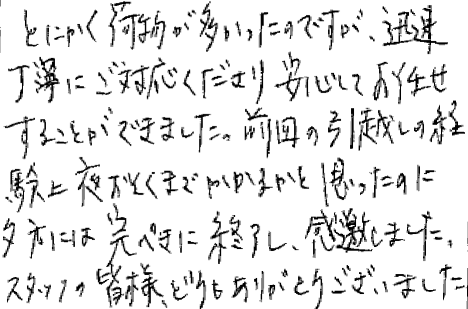 とにかく荷物が多かったのですが、迅速
丁寧にご対応くださり安心してお任せ
することができました。前回の引越しの経
験上夜おそくまでかかるかと思ったのに
夕方には完ぺきに終了し、感激しました。
スタッフの皆様、どうもありがとうございました